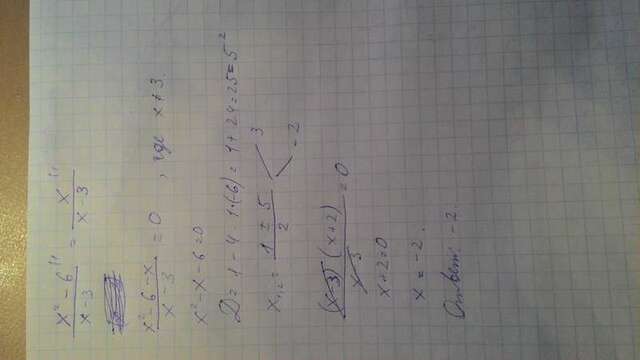 x² - 6 \1 / x - 3 = x \1 / x - 3
x² - 6 - x / x - 3 = 0 , где x ≠ 3.
x² - x - 6 = 0
D = 1 - 4 · 1 · (6) = 1 + 24 = 25 = 5²
x₁,₂ = 1 ± 5 / 2 < 3 - 2
(x - 3) (x + 2) / x - 3 = 0
x + 2 = 0
x = - 2.
Ответ: - 2.